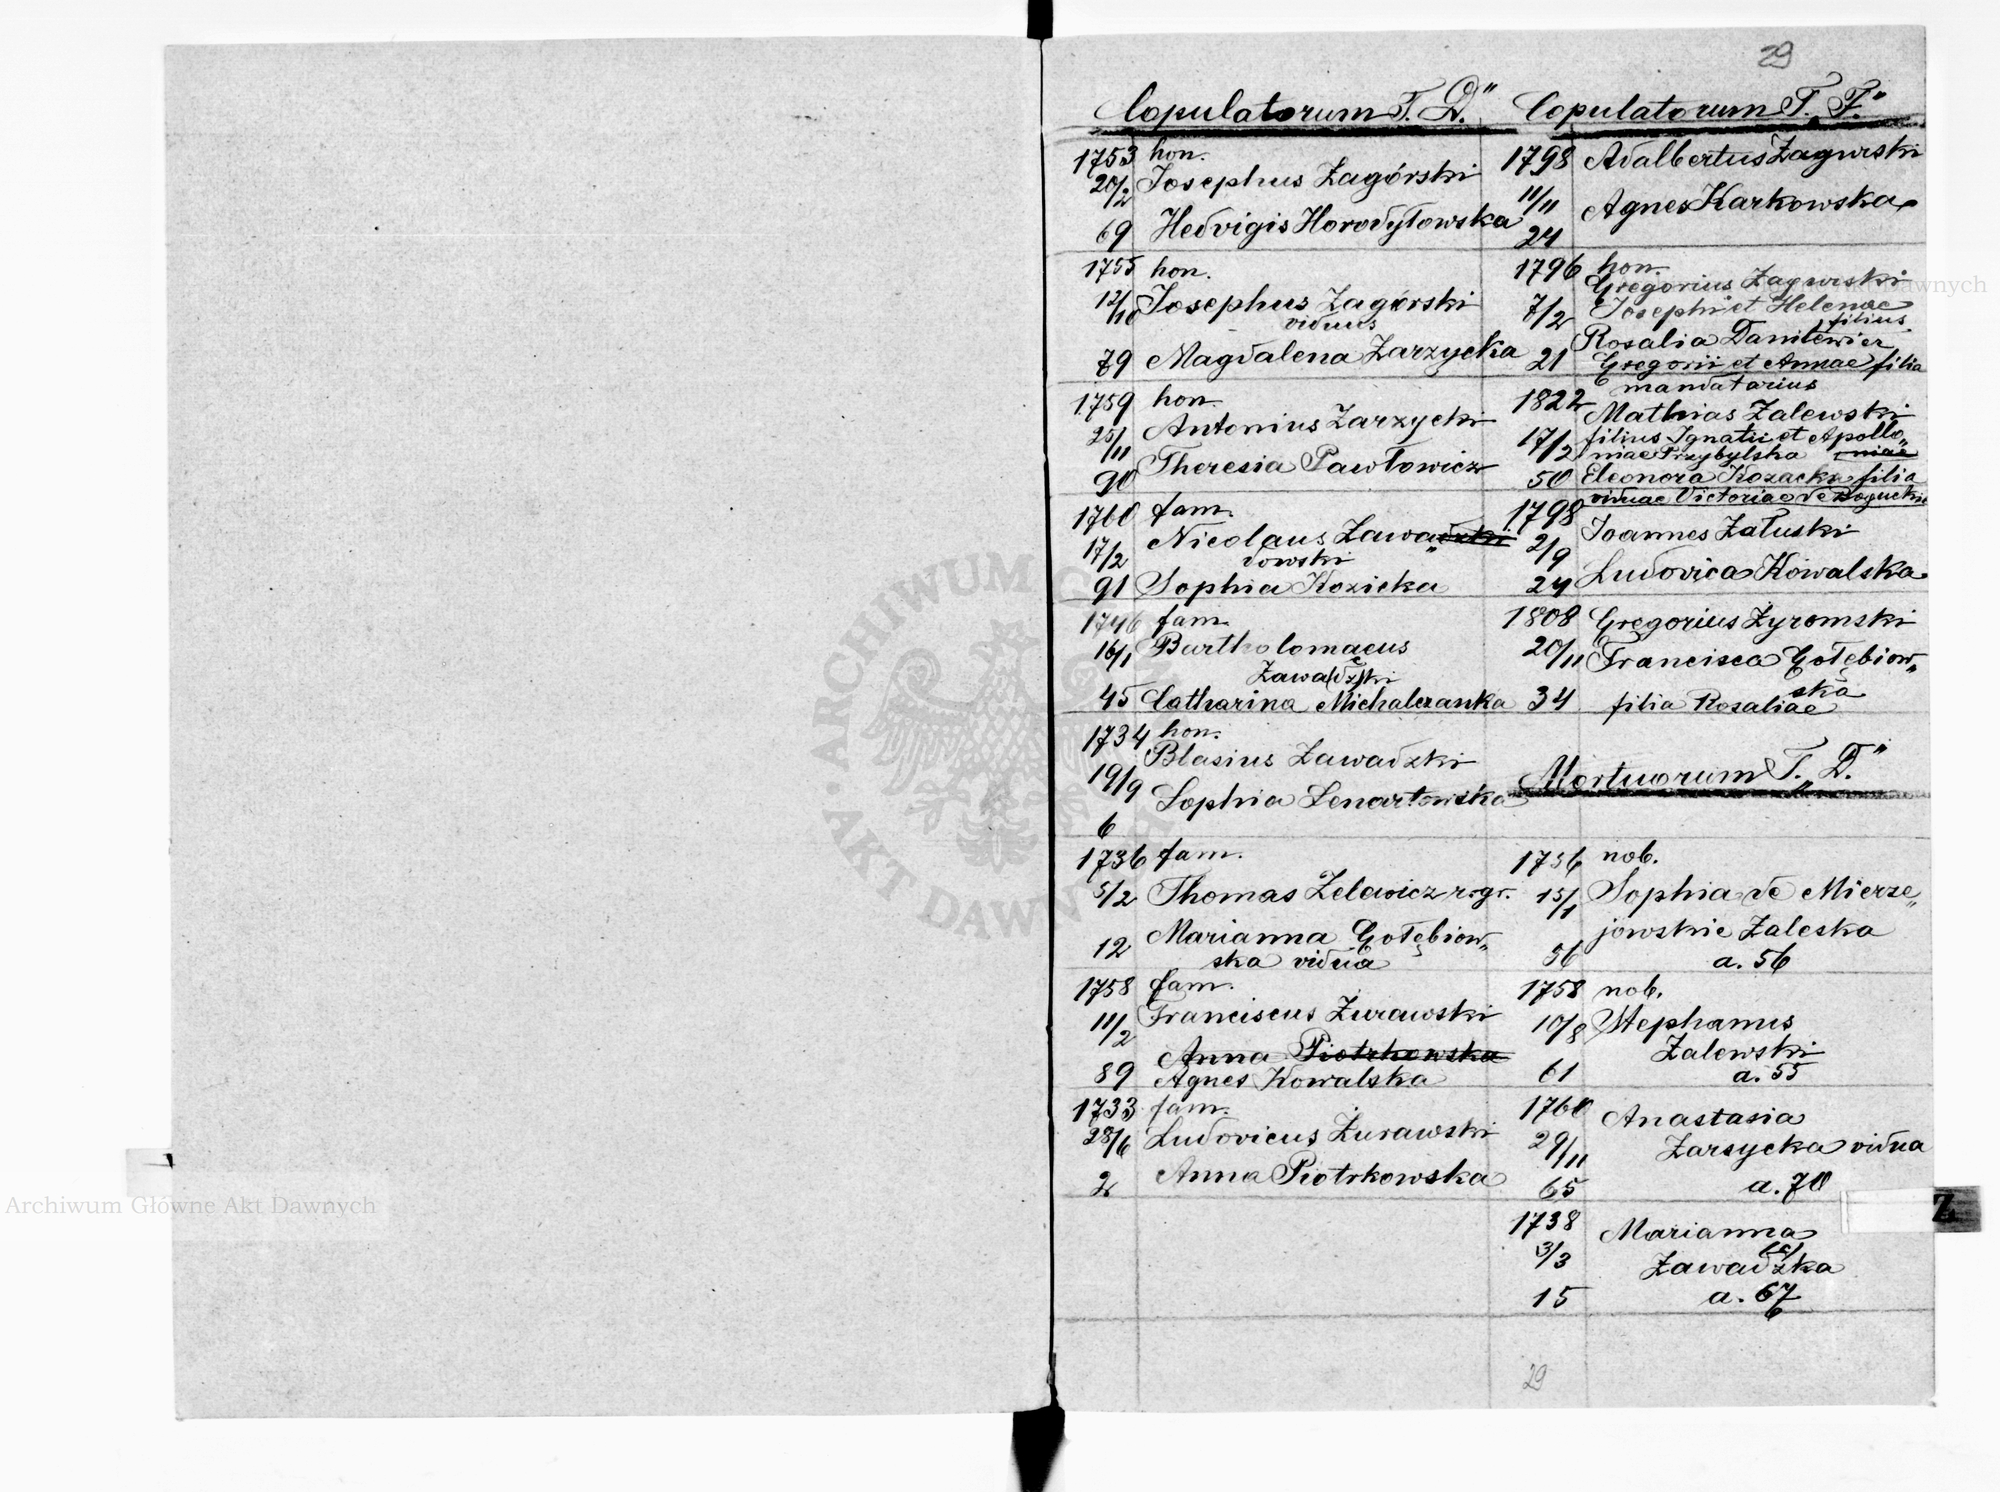 29
Copulatorum T. „D."
1753 hon.
20/2 Josephus Zagórski
69 Hedvigis Horodyłowska
1755 hon.
12/10 Josephus Zagórski
viduus
79 Magdalena Zarzycka
1759 hon.
25/11 Antonius Zarzycki
90 Theresia Pawłowicz
1760 fam.
17/2 Nicolaus Zawadzki
„dowski
91 Sophia Kozicka
1746 fam.
16/1 Bartholomaeus
Zawa(dz)ki
45 Catharina Michalczanka
1734 hon.
19/9 Blasius Zawadzki
Sophia Lenartowska
6
1736 fam.
5/2 Thomas Zelewicz r. gr.
12 Marianna Gołębiow„
ska vidua
1758 fam.
11/2 Franciscus Żurawski
Anna Piotrkowska
89 Agnes Kowalska
1733 fam.
28/6 Ludovicus Żurawski
2 Anna Piotrkowska
Copulatorum T. „F."
1798 Adalbertus Zagurski
11/11 Agnes Karkowska
24
1796 hon.
Gregorius Zagurski
7/2 Josephi et Helenae
filius
Rosalia Danilewicz
21 Gregorii et Annae filia
mandatarius
1822 Mathias Zalewski
17/2 filius Ignatii et Apollo„
niae Przybylska niae
50 Eleonora Kozacka filia
viduae Victoriae de Boguckie
1798 Joannes Załuski
2/9
24 Ludovica Kowalska
1808 Gregorius Żyromski
20/11 Francisca Gołębiow„
ska
34 filia Rosaliae
Mortuorum T. „D."
1756 nob.
15/1 Sophia de Mierze„
jowskie Zaleska
56 a. 56
1758 nob.
10/8 Stephanus
Zalewski
61 a. 55
1760 Anastasia
29/11 Zarsycka vidua
65 a. 70
1738 Marianna
3/3 Zawadzka
15 a. 67
29
Z
ARCHIWUM GŁÓWNE AKT DAWNYCH
Archiwum Główne Akt Dawnych